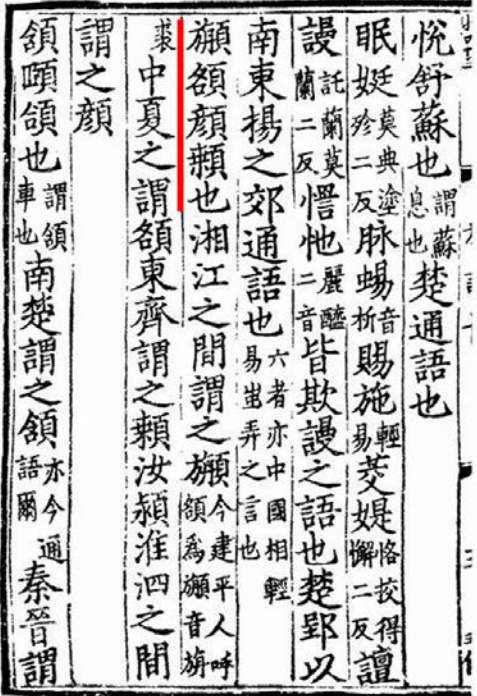 悅舒蘇也謂蘇息也楚通語也
眠娗莫典塗殄二反脉蜴音析賜施輕易茭媞恪挍得懈二反譠
謾託蘭莫蘭二反㦒忚麗醯二音皆欺謾之語也楚郢以
南東揚之郊通語也六者亦中國相輕易蚩弄之言也
䫖頟顏顙也湘江之間謂之䫖今建平人呼頟爲䫖音旃
裘中夏之謂頟東齊謂之顙汝潁淮泗之間
謂之顏
頷頤頜也謂頷車也南楚謂之頷亦今通語爾秦晉謂